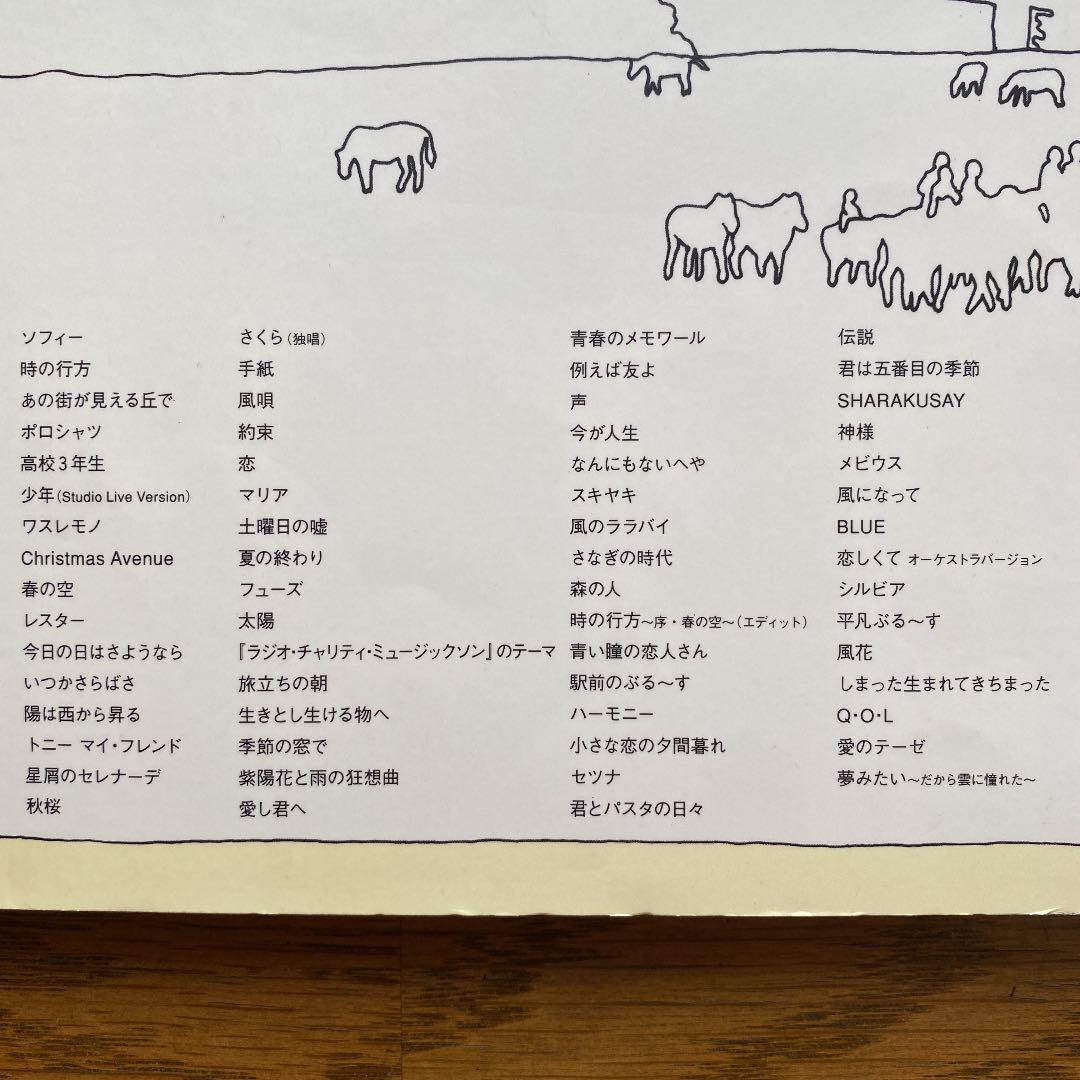 ソフィー
時の行方
あの街が見える丘で
ポロシャツ
高校3年生
少年(Studio Live Version)
ワスレモノ
Christmas Avenue
春の空
レスター
今日の日はさようなら
いつかさらばさ
陽は西から昇る
トニー マイ・フレンド
星屑のセレナーデ
秋桜
さくら(独唱)
手紙
風唄
約束
恋
マリア
土曜日の嘘
夏の終わり
フューズ
太陽
『ラジオ・チャリティ・ミュージックソン』のテーマ
旅立ちの朝
生きとし生ける物へ
季節の窓で
紫陽花と雨の狂想曲
愛し君へ
青春のメモワール
例えば友よ
声
今が人生
なんにもないへや
スキヤキ
風のララバイ
さなぎの時代
森の人
時の行方〜序・春の空〜(エディット)
青い瞳の恋人さん
駅前のぶる〜す
ハーモニー
小さな恋の夕間暮れ
セツナ
君とパスタの日々
伝説
君は五番目の季節
SHARAKUSAY
神様
メビウス
風になって
BLUE
恋しくて オーケストラバージョン
シルビア
平凡ぶる〜す
風花
しまった生まれてきちまった
Q・O・L
愛のテーゼ
夢みたい〜だから雲に憧れた〜